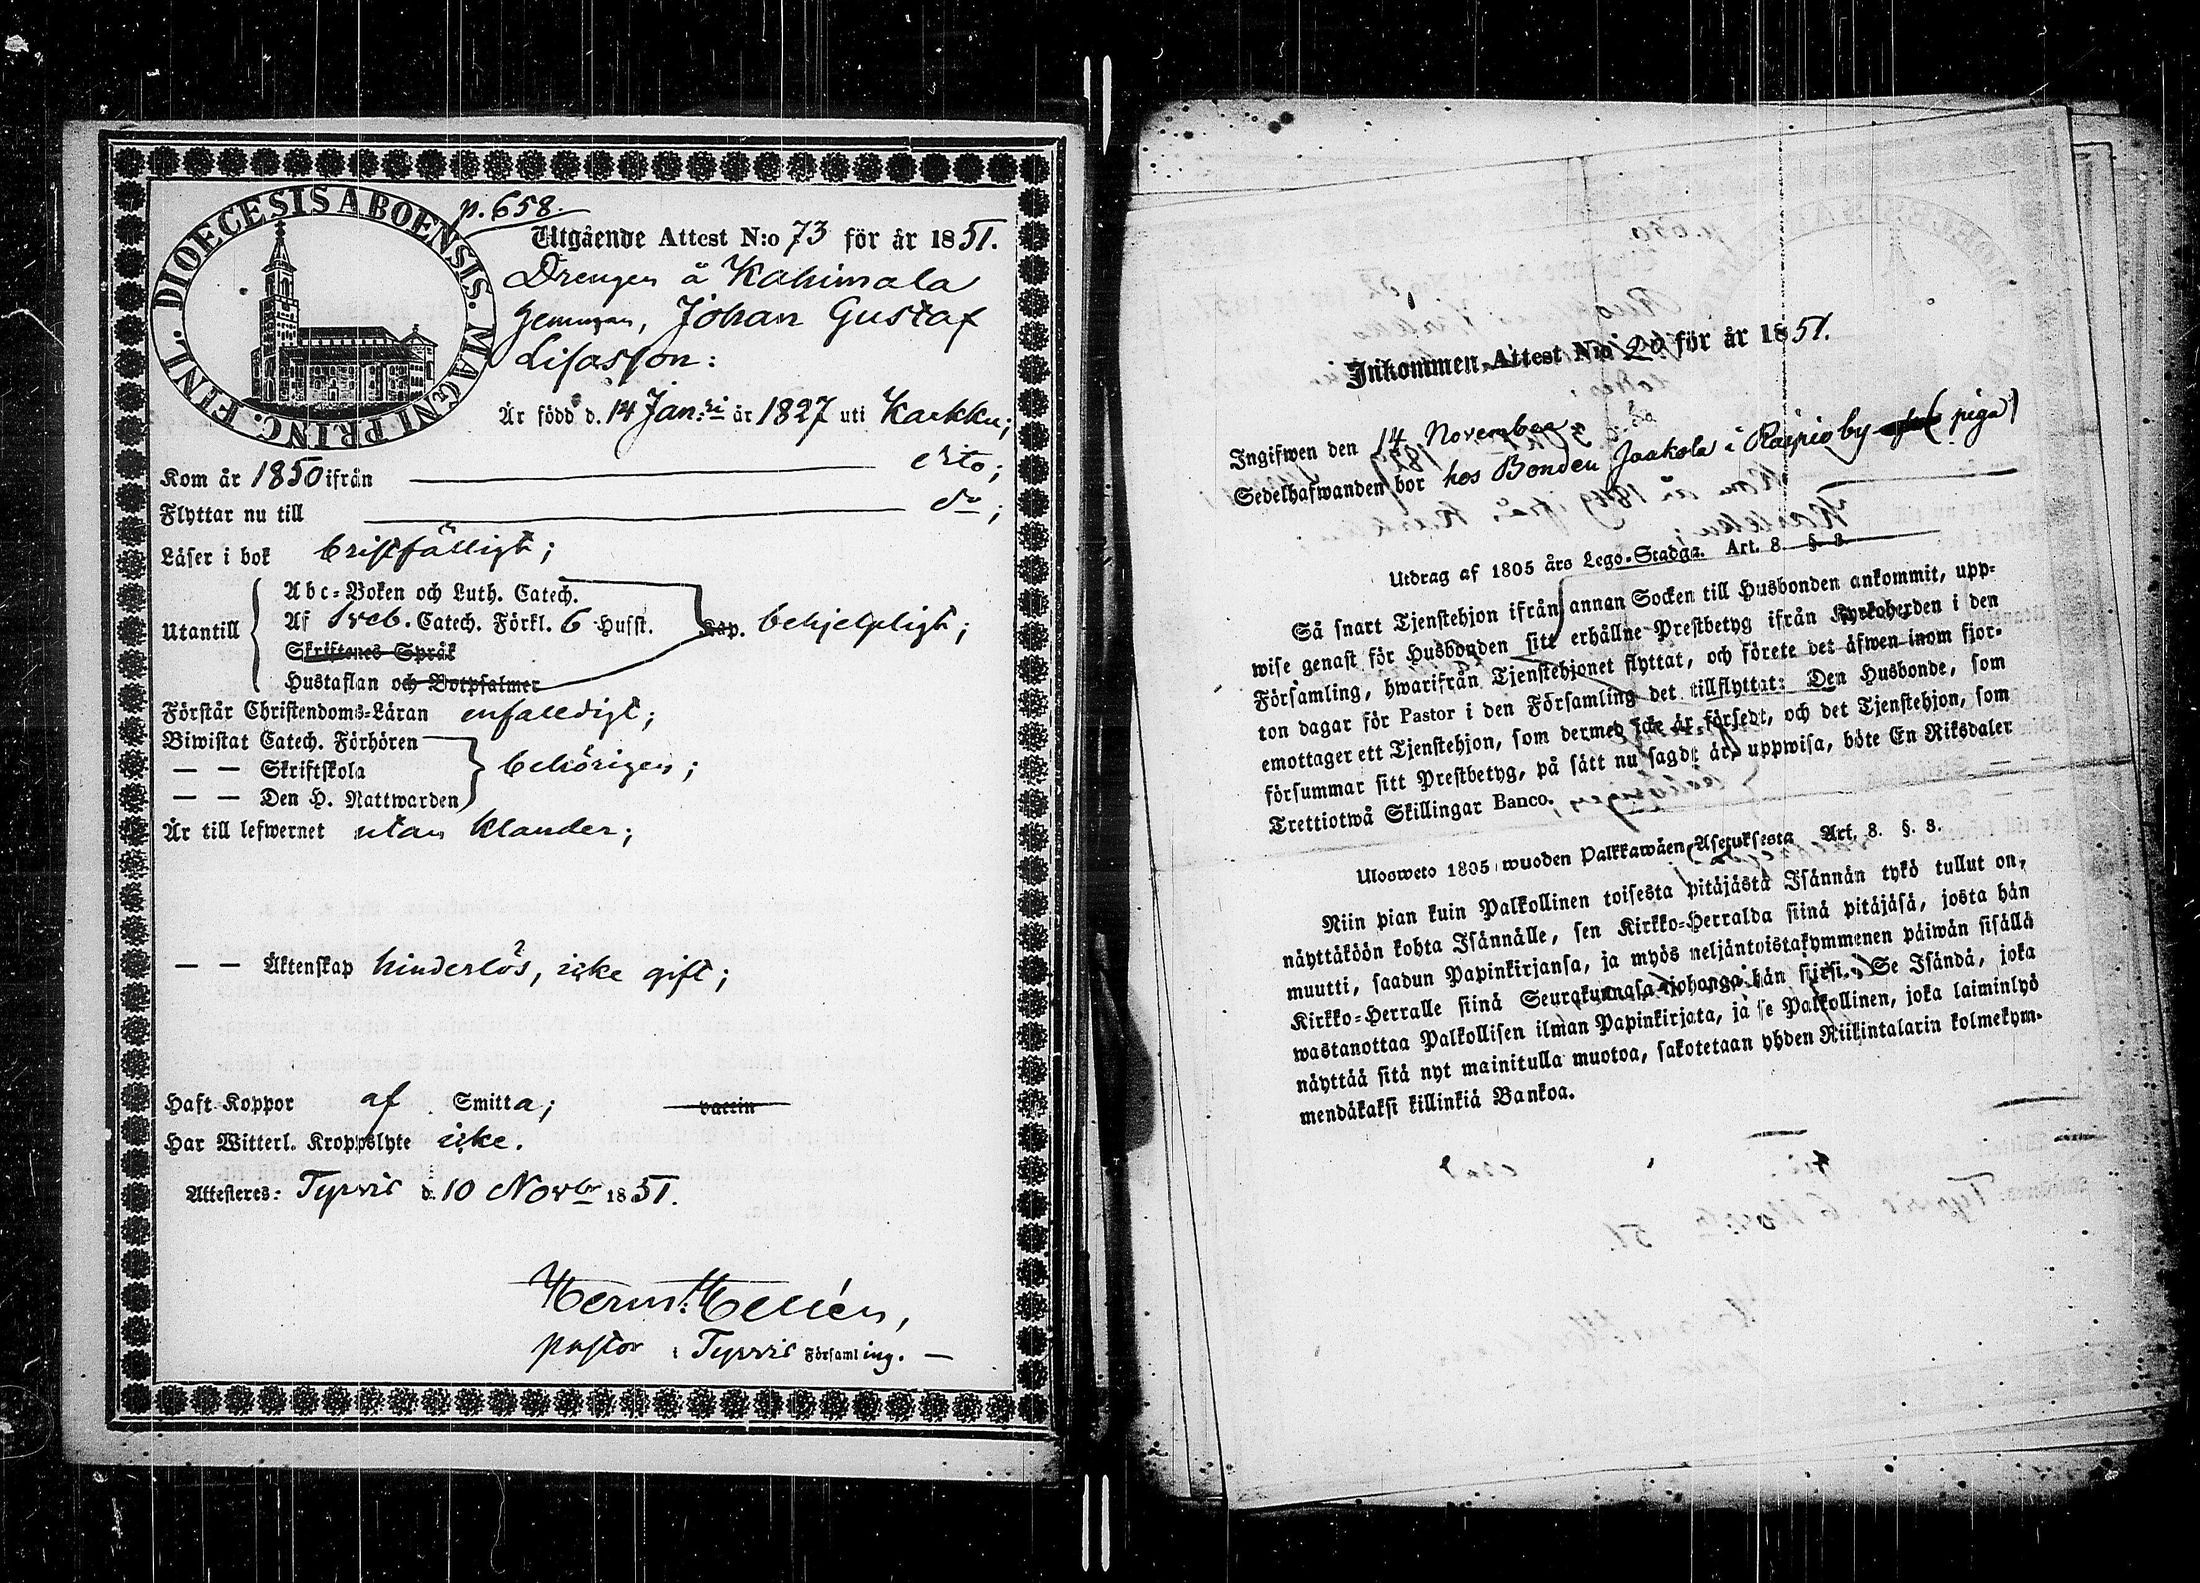 DIOECESIS ABOENSIS. MAGNI PRINC. FINL.
p. 658.
Utgående Attest N:o 73 för år 1851.
Drengen å Kahimala
Johan Gustaf
Lisasson:
Är född d. 14 Jan:ri år 1827 uti Karkku;
Kom år 1850 ifrån dito;
Flyttar nu till do;
Läser i bok bristfälligt;
Utantill
Abc-Boken och Luth. Catech.
Af Sveb. Catech. Förkl. 6 Husst. Kap. behjelpligt;
Skriftenes Språk
Hustaflan och Botpsalmer
Förstår Christendoms-Läran enfaldigt;
Biwistat Catech. Förhören
— — Skriftskola behörigen;
— — Den H. Nattwarden
Är till lefwernet utan klander;
— — Äktenskap hinderlös, icke gift;
Haft Koppor af Smitta; vaccin
Har Witterl. Kroppslyte icke.
Attesteres: Tyrvis d. 10 Novbr 1851.
Herm: Hellén,
pastor i Tyrvis Församling. —
Inkommen Attest N:o 20 för år 1851.
Ingifwen den 14 November
Sedelhafwanden bor hos Bonden Jaakola i Raipio by (piga)
Utdrag af 1805 års Lego-Stadga. Art. 8 §. 8.
Så snart Tjenstehjon ifrån annan Socken till Husbonden ankommit, upp-
wise genast för Husbonden sitt erhållne Prestbetyg ifrån Kyrkoherden i den
Församling, hwarifrån Tjenstehjonet flyttat, och förete det äfwen inom fjor-
ton dagar för Pastor i den Församling det tillflyttat: Den Husbonde, som
emottager ett Tjenstehjon, som dermed icke är försedt, och det Tjenstehjon, som
försummar sitt Prestbetyg, på sätt nu sagdt är, uppwisa, böte En Riksdaler
Trettiotwå Skillingar Banco.
Ulosweto 1805 wuoden Palkkawäen Asetuksesta Art. 8. §. 8.
Niin pian kuin Palkollinen toisesta pitäjästä Isännän tykö tullut on,
näyttäköön kohta Isännälle, sen Kirkko-Herralda siinä pitäjäsä, josta hän
muutti, saadun Papinkirjansa, ja myös neljäntoistakymmenen päiwän sisällä
Kirkko-Herralle siinä Seurakunnasa johonga hän siirsi. Se Isändä, joka
wastanottaa Palkollisen ilman Papinkirjata, ja se Palkollinen, joka laiminlyö
näyttää sitä nyt mainitulla muotoa, sakotetaan yhden Riikintalarin kolmekym-
mendäkaksi killinkiä Bankoa.